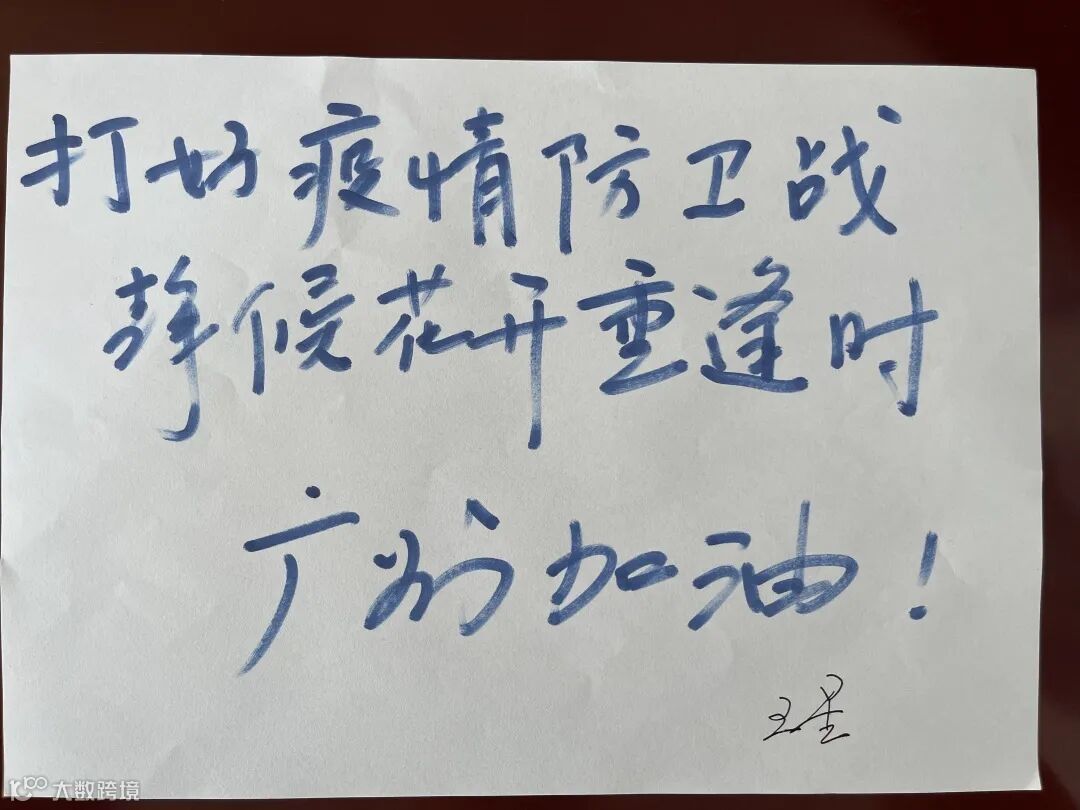 打好疫情防卫战
静候花开重逢时
广州加油！
王星
大数跨境